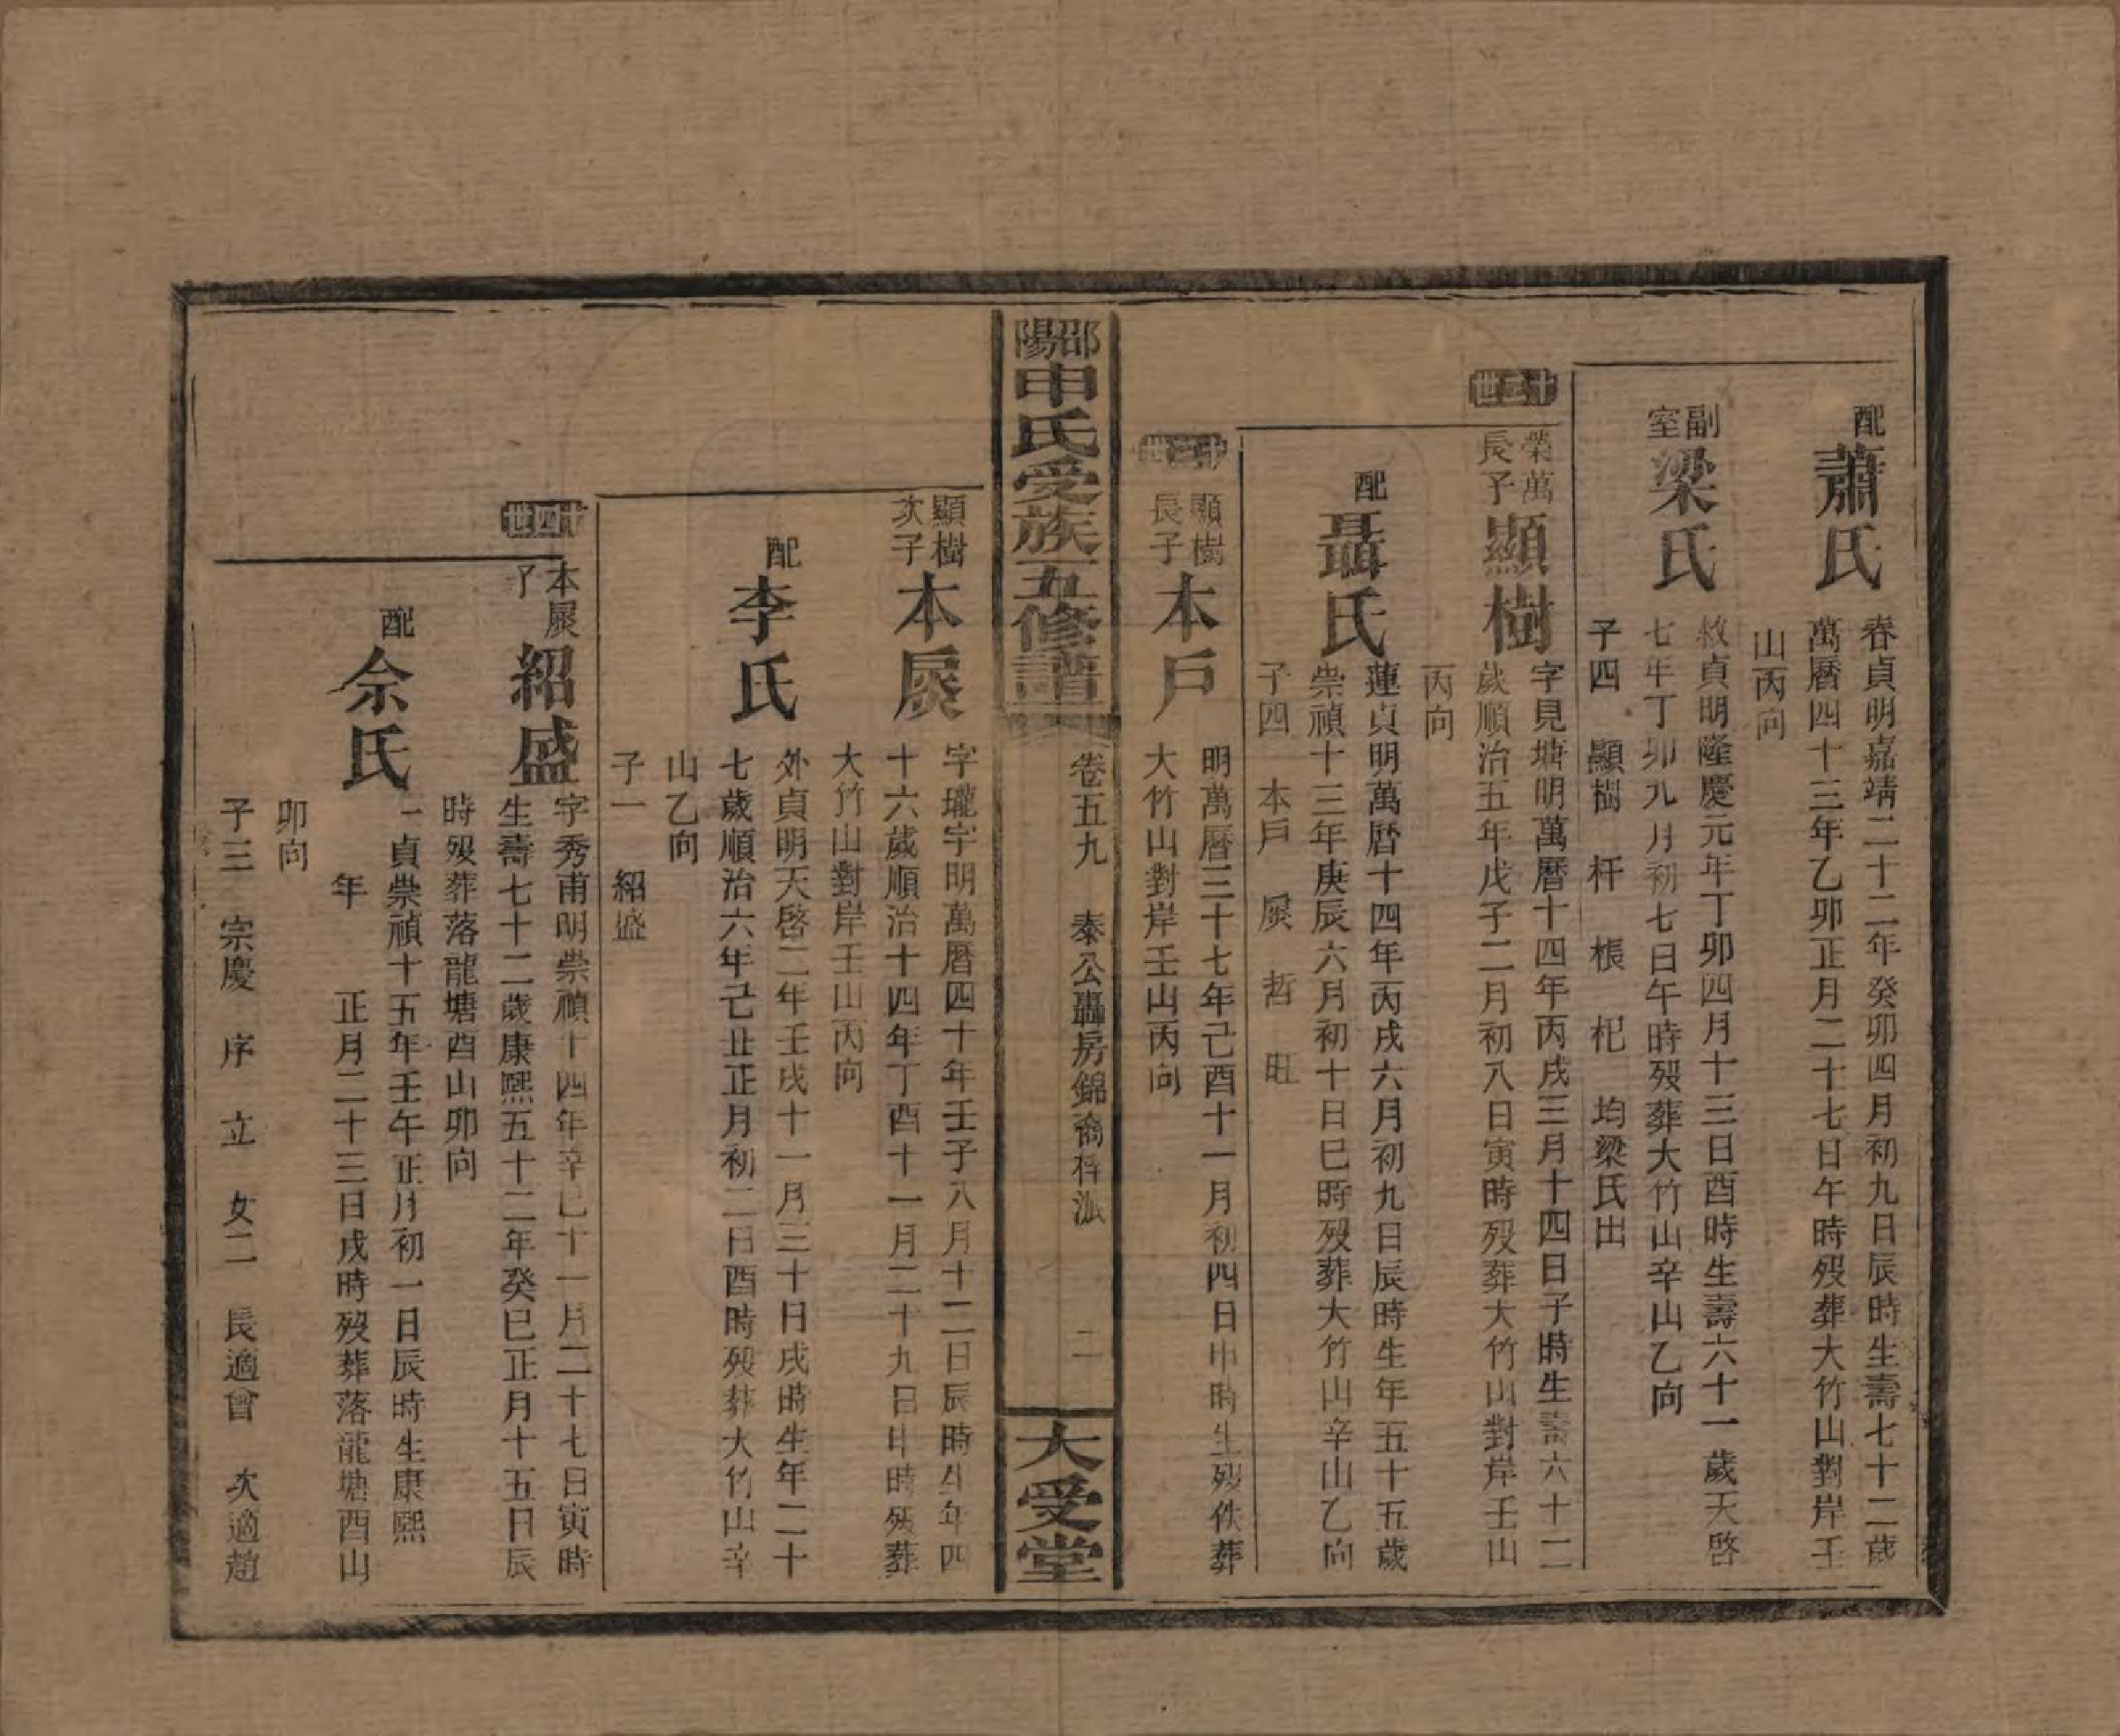 配
蕭氏
春貞明嘉靖二十二年癸卯四月初九日辰時生壽七十二歲
萬曆四十三年乙卯正月二十七日午時歿葬大竹山對岸壬
山丙向
副室
梁氏
敕貞明隆慶元年丁卯四月十三日酉時生壽六十一歲天啓
七年丁卯九月初七日午時歿葬大竹山辛山乙向
子四 顯樹 杆 棖 杞 均梁氏出
十二世
榮萬長子
顯樹
字見塘明萬曆十四年丙戌三月十四日子時生壽六十二
歲順治五年戊子二月初八日寅時歿葬大竹山對岸壬山
丙向
配
聶氏
蓮貞明萬曆十四年丙戌六月初九日辰時生年五十五歲
崇禎十三年庚辰六月初十日巳時歿葬大竹山辛山乙向
子四 本戶 戾 哲 旺
顯樹長子
本戶
明萬曆三十七年己酉十一月初四日申時生歿佚葬
大竹山對岸壬山丙向
邵陽申氏受族五修譜
卷五九 泰公轟房錦裔梓派 二
大受堂
顯樹次子
本戾
字瓏宇明萬曆四十年壬子八月十二日辰時生年四
十六歲順治十四年丁酉十一月二十九日申時歿葬
大竹山對岸壬山丙向
配
李氏
外貞明天啓二年壬戌十一月三十日戌時生年二十
七歲順治六年己丑正月初二日酉時歿葬大竹山辛
山乙向
子一 紹盛
十四世
本戾子
紹盛
字秀甫明崇禎十四年辛巳十一月二十七日寅時
生壽七十二歲康熙五十二年癸巳正月十五日辰
時歿葬落龍塘酉山卯向
配
佘氏
一貞崇禎十五年壬午正月初一日辰時生康熙
年 正月二十三日戌時歿葬落龍塘酉山
卯向
子三 宗慶 序 立 女二 長適曾 次適趙